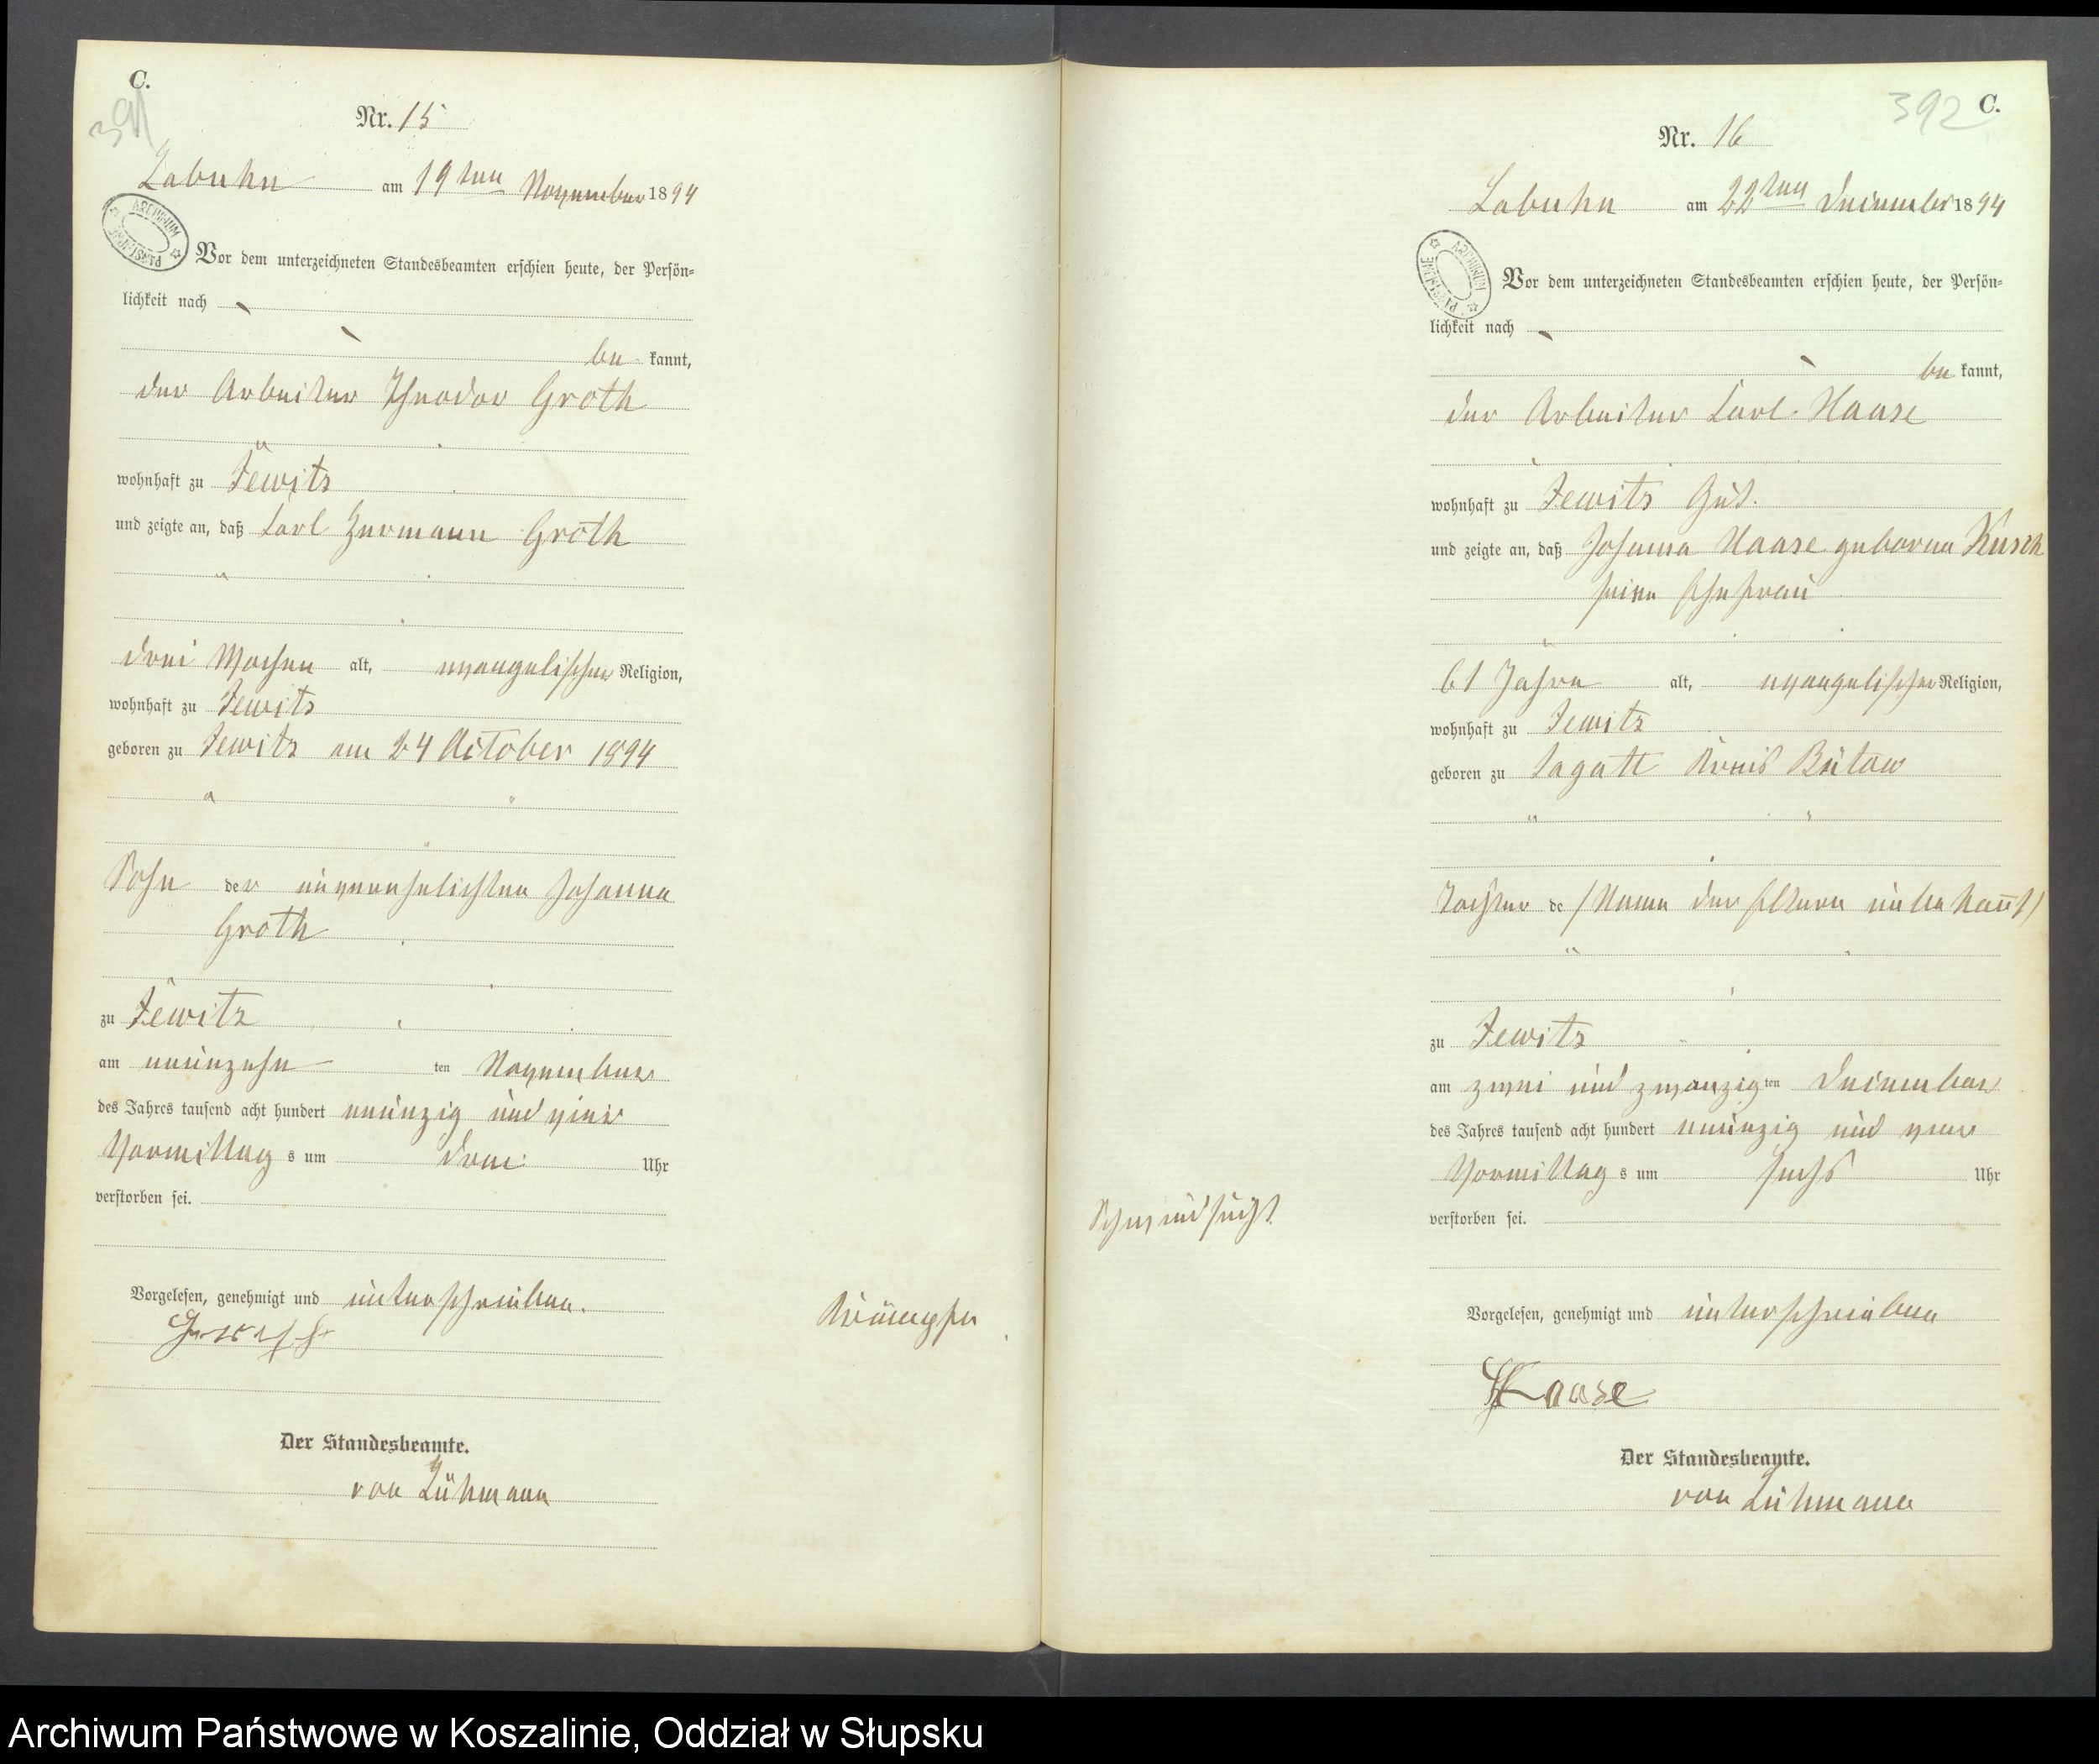 C.
391
Nr. 15
Labuhn am 19ten November 1894
ARCHIWUM PAŃSTWOWE
Vor dem unterzeichneten Standesbeamten erschien heute, der Persön-
lichkeit nach
be kannt,
der Arbeiter Theodor Groth
wohnhaft zu Jewitz
und zeigte an, daß Carl Hermann Groth
drei Wochen alt, evangelischer Religion,
wohnhaft zu Jewitz
geboren zu Jewitz am 24 October 1894
Sohn der unverehelichten Johanna
Groth
zu Jewitz
am neunzehn ten November
des Jahres tausend acht hundert neunzig und vier
Vormittag s um drei Uhr
verstorben sei.
Vorgelesen, genehmigt und unterschrieben.
Krämpfe
Der Standesbeamte.
von Lühmann
392 C.
Nr. 16
Labuhn am 22ten Decembr 1894
ARCHIWUM PAŃSTWOWE
Vor dem unterzeichneten Standesbeamten erschien heute, der Persön-
lichkeit nach
be kannt,
der Arbeiter Carl Haase
wohnhaft zu Jewitz Gut.
und zeigte an, daß Johanna Haase geborene Kusch
seine Ehefrau
61 Jahre alt, evangelischer Religion,
wohnhaft zu Jewitz
geboren zu Kreis Bütow
Tochter de /Name der Eltern unbekannt/
zu Jewitz
am zwei und zwanzig ten December
des Jahres tausend acht hundert neunzig und vier
Vormittag s um sechs Uhr
verstorben sei.
Schwindsucht
Vorgelesen, genehmigt und unterschrieben
Haase
Der Standesbeamte.
von Lühmann
Archiwum Państwowe w Koszalinie, Oddział w Słupsku